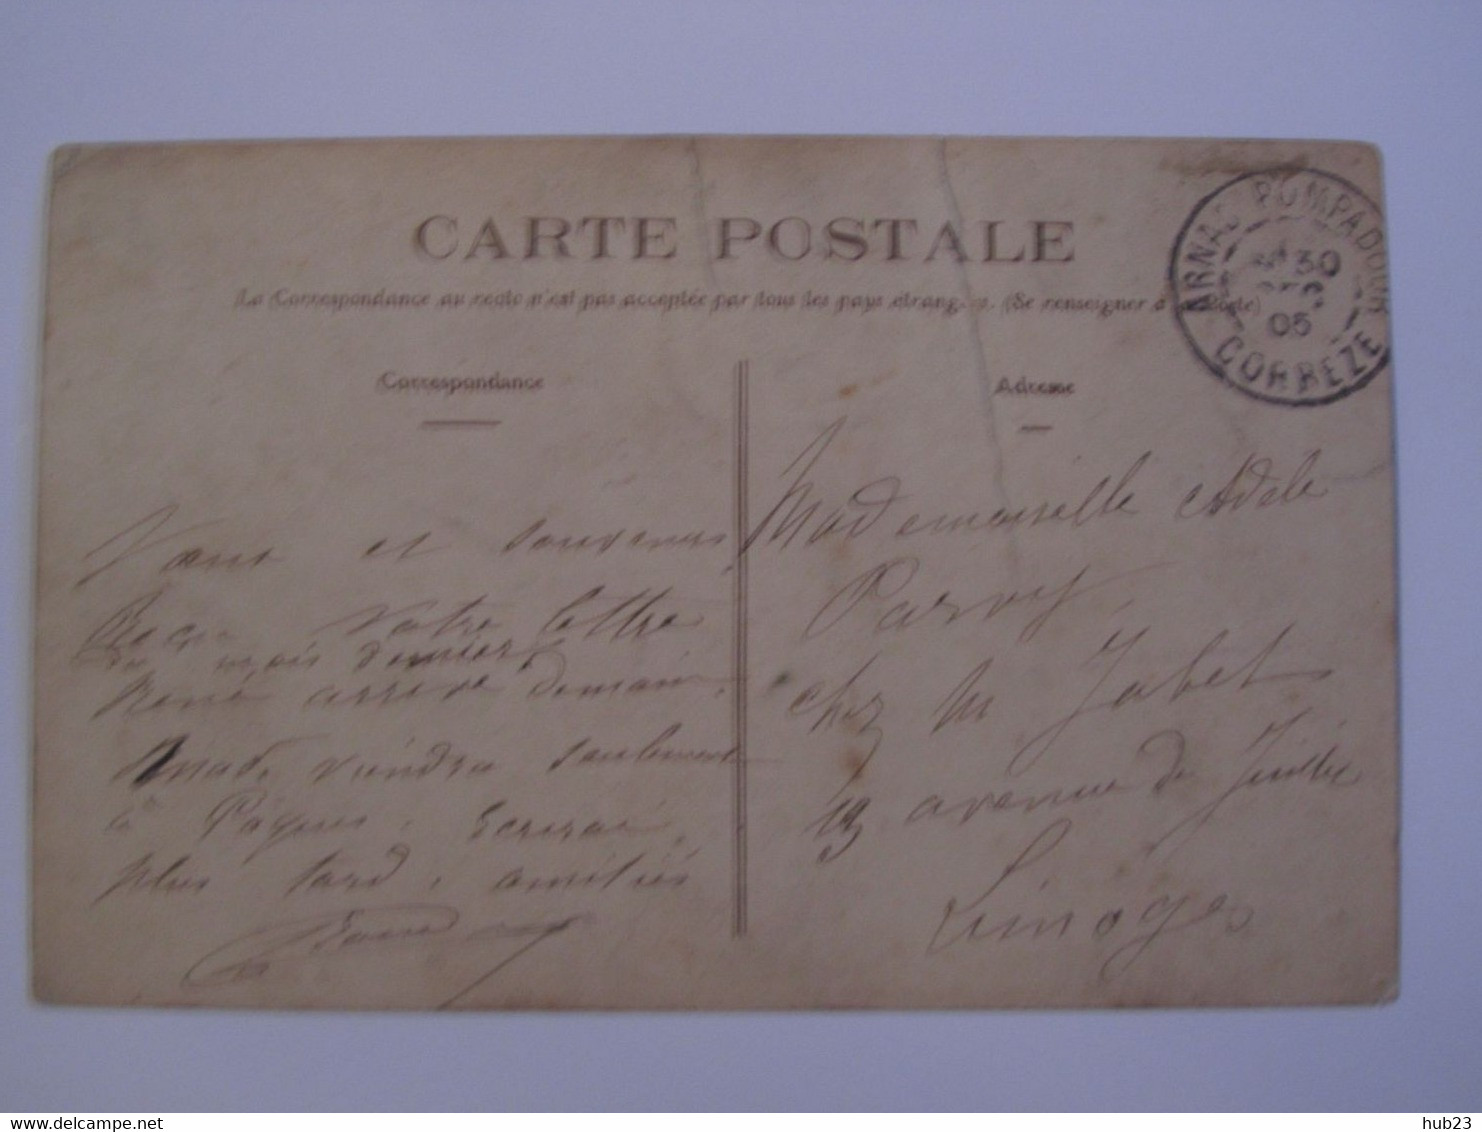 CARTE POSTALE
La Correspondance au recto n'est pas acceptée par tous les pays étrangers. (Se renseigner à la Poste)
Correspondance
Vœux et souvenirs
Reçu votre lettre
du mois dernier,
René arrive demain,
viendra seulement
à Pâques. Écrirai
plus tard, amitiés
Adresse
Mademoiselle Adèle
Parvy
chez M Jabet
19 avenue de Juillet
Limoges
ARNAC POMPADOUR
30
05
CORRÈZE
delcampe.net
hub23